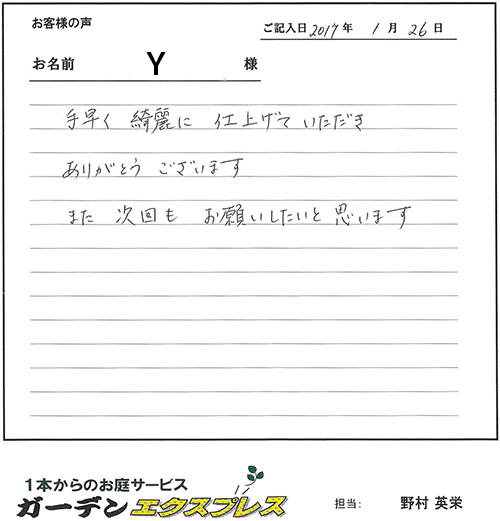 お客様の声
ご記入日 2017年 1月 26日
お名前 Y 様
手早く 綺麗に 仕上げて いただき
ありがとう ございます
また 次回も お願いしたいと 思います
1本からのお庭サービス
ガーデンエクスプレス
担当: 野村 英栄